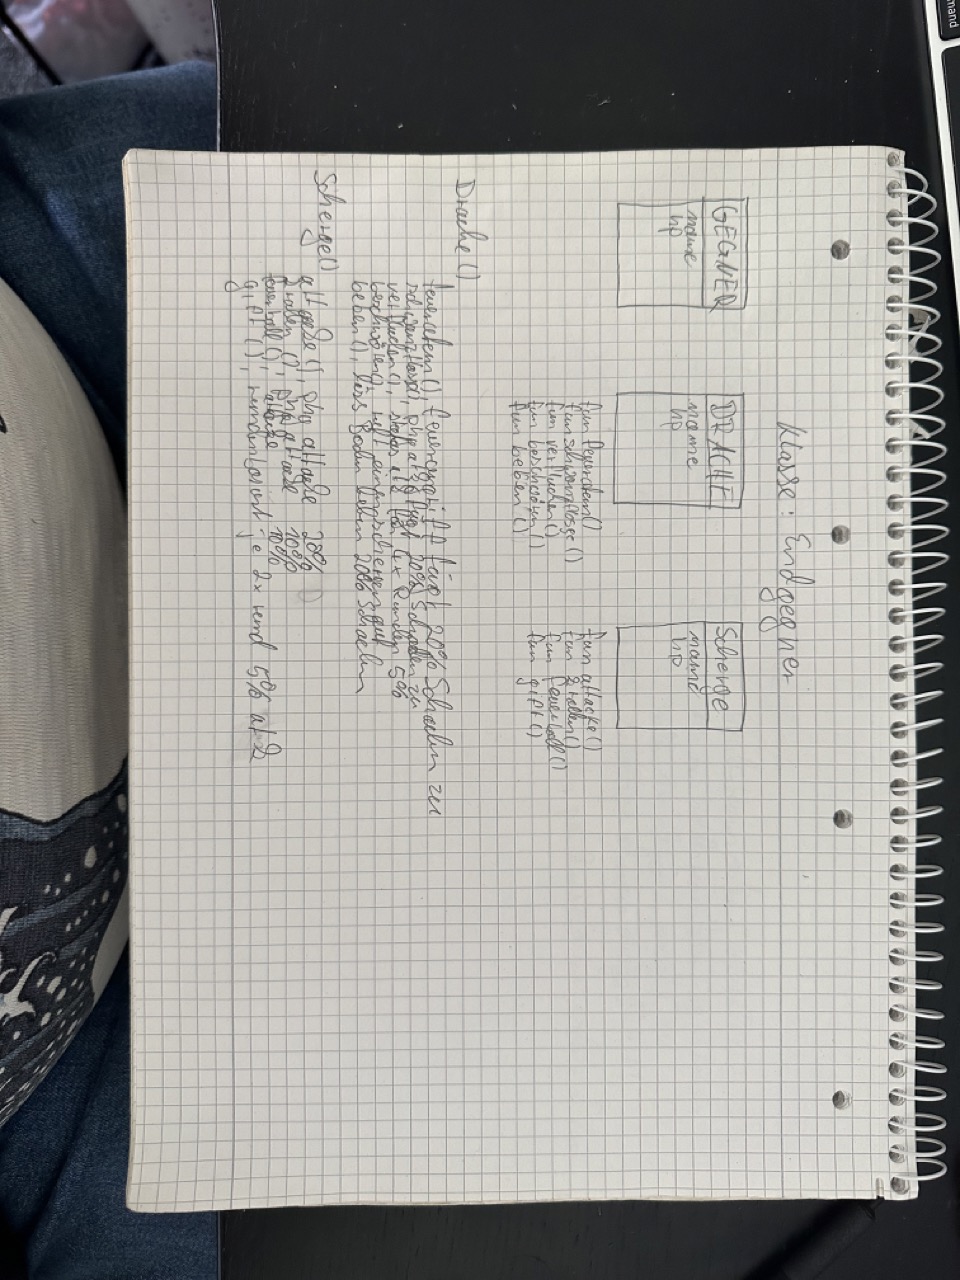 mand
Klasse: Endgegner
GEGNER
name
hp
DRACHE
name
hp
Scherge
name
hp
fun feueratem()
fun schwanzflosse()
fun verfluchen()
fun beschwören()
fun beben()
fun attacke()
fun krallen()
fun feuerball()
fun gift()
Drache()
feueratem(), feuerangriff fügt 20% Schaden zu
schwanzfloss(), phy atk fügt 20% Schaden zu
verfluchen(), für 4x Runden 5%
beschwören(), ruft einen schergen auf
beben(), Boden beben 20% Schaden
Scherge()
attacke(), phy attacke 20%
krallen(), phy attacke 10%
feuerball(), attacke 10%
gift(), rundenbasiert je 2x rund 5% atk